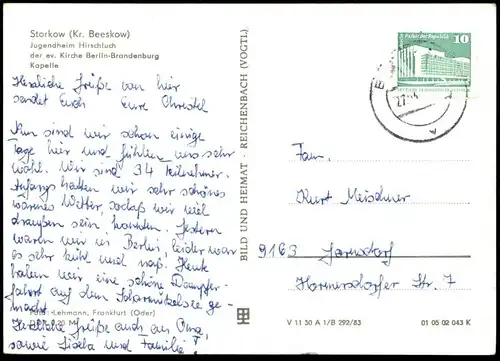 Storkow (Kr. Beeskow)
Jugendheim Hirschluch
der ev. Kirche Berlin-Brandenburg
Kapelle
Herzliche Grüße von hier
sendet Euch Eure Christel
Nun sind wir schon einige
Tage hier und fühlen uns sehr
wohl. Wir sind 34 Teilnehmer.
Anfangs hatten wir sehr schönes
warmes Wetter, sodaß wir viel
draußen sein konnten. Gestern
waren wir in Berlin, leider war
es sehr kühl und naß. Heute
haben wir eine schöne Dampfer-
fahrt auf dem Scharmützelsee ge-
macht.
Foto: Lehmann, Frankfurt (Oder)
Herzliche Grüße auch an Oma,
sowie Gisela und Familie!
BILD UND HEIMAT · REICHENBACH (VOGTL)
10
Palast der Republik
Fam.
Kurt Meischner
9163 Jarnsdorf
Hormersdorfer Str. 7
V 11 30 A 1/B 292/83
01 05 02 043 K